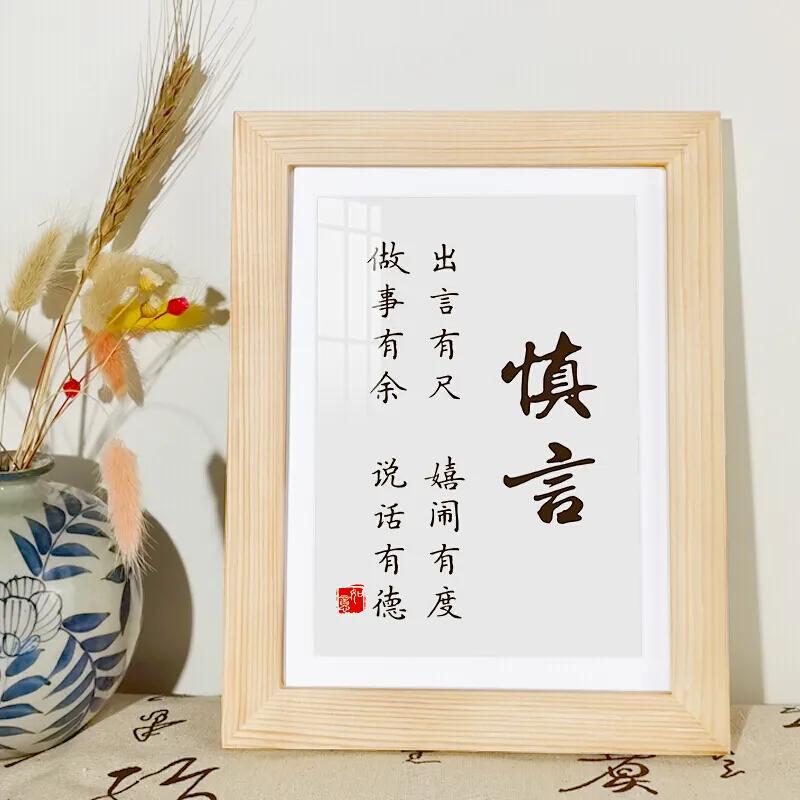 慎言
出言有尺 嬉闹有度
做事有余 说话有德